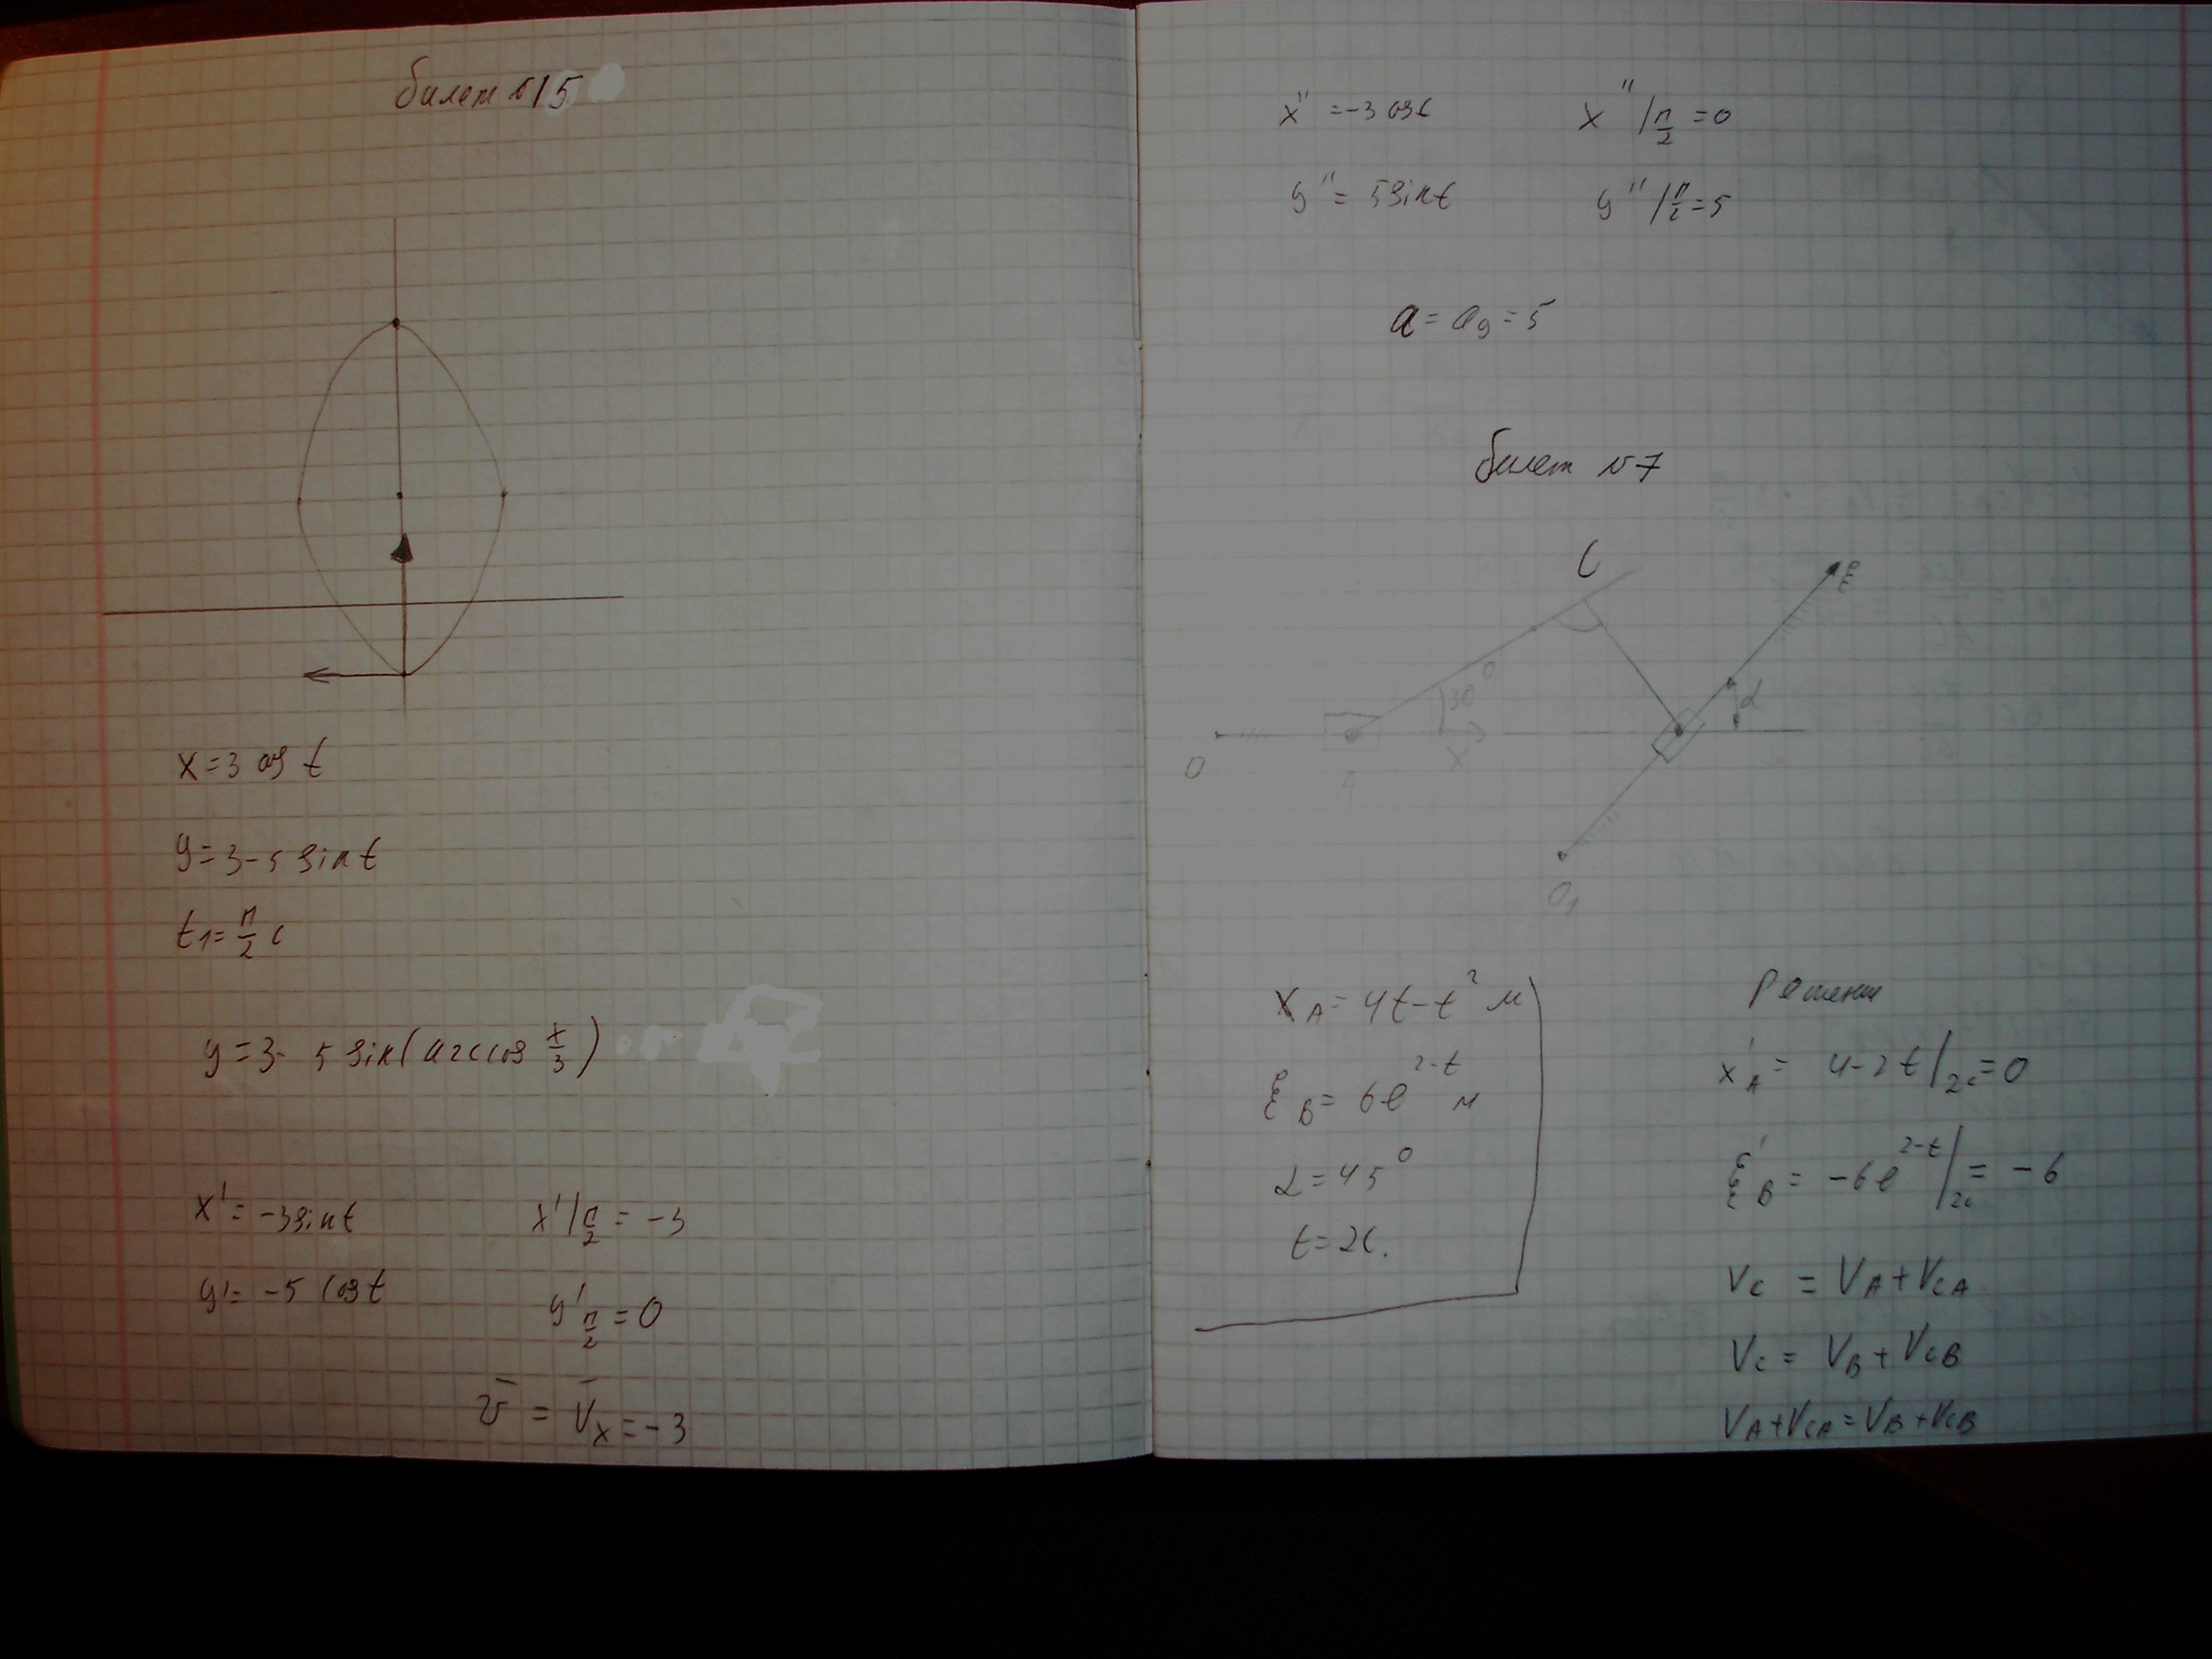 билет №15
x=3 cos t
y=3-5 sin t
t₁=π/2 c
y=3-5 sin(arccos x/3)
x'=-3sin t x'/π/2=-3
y'=-5 cos t y'π/2=0
v̄ = v̄x=-3
x''=-3 cos t x''/π/2=0
y''=5 sin t y''/π/2=5
a=ay=5
билет №7
C
ξ
30°
α
O A x
O₁
xA=4t-t² м
ξB=6e^2-t м
α=45°
t=2c.
Решение
x'A=4-2t/2c=0
ξ'B=-6e^2-t/2c=-6
Vc = VA+VCA
Vc = VB+VCB
VA+VCA=VB+VCB